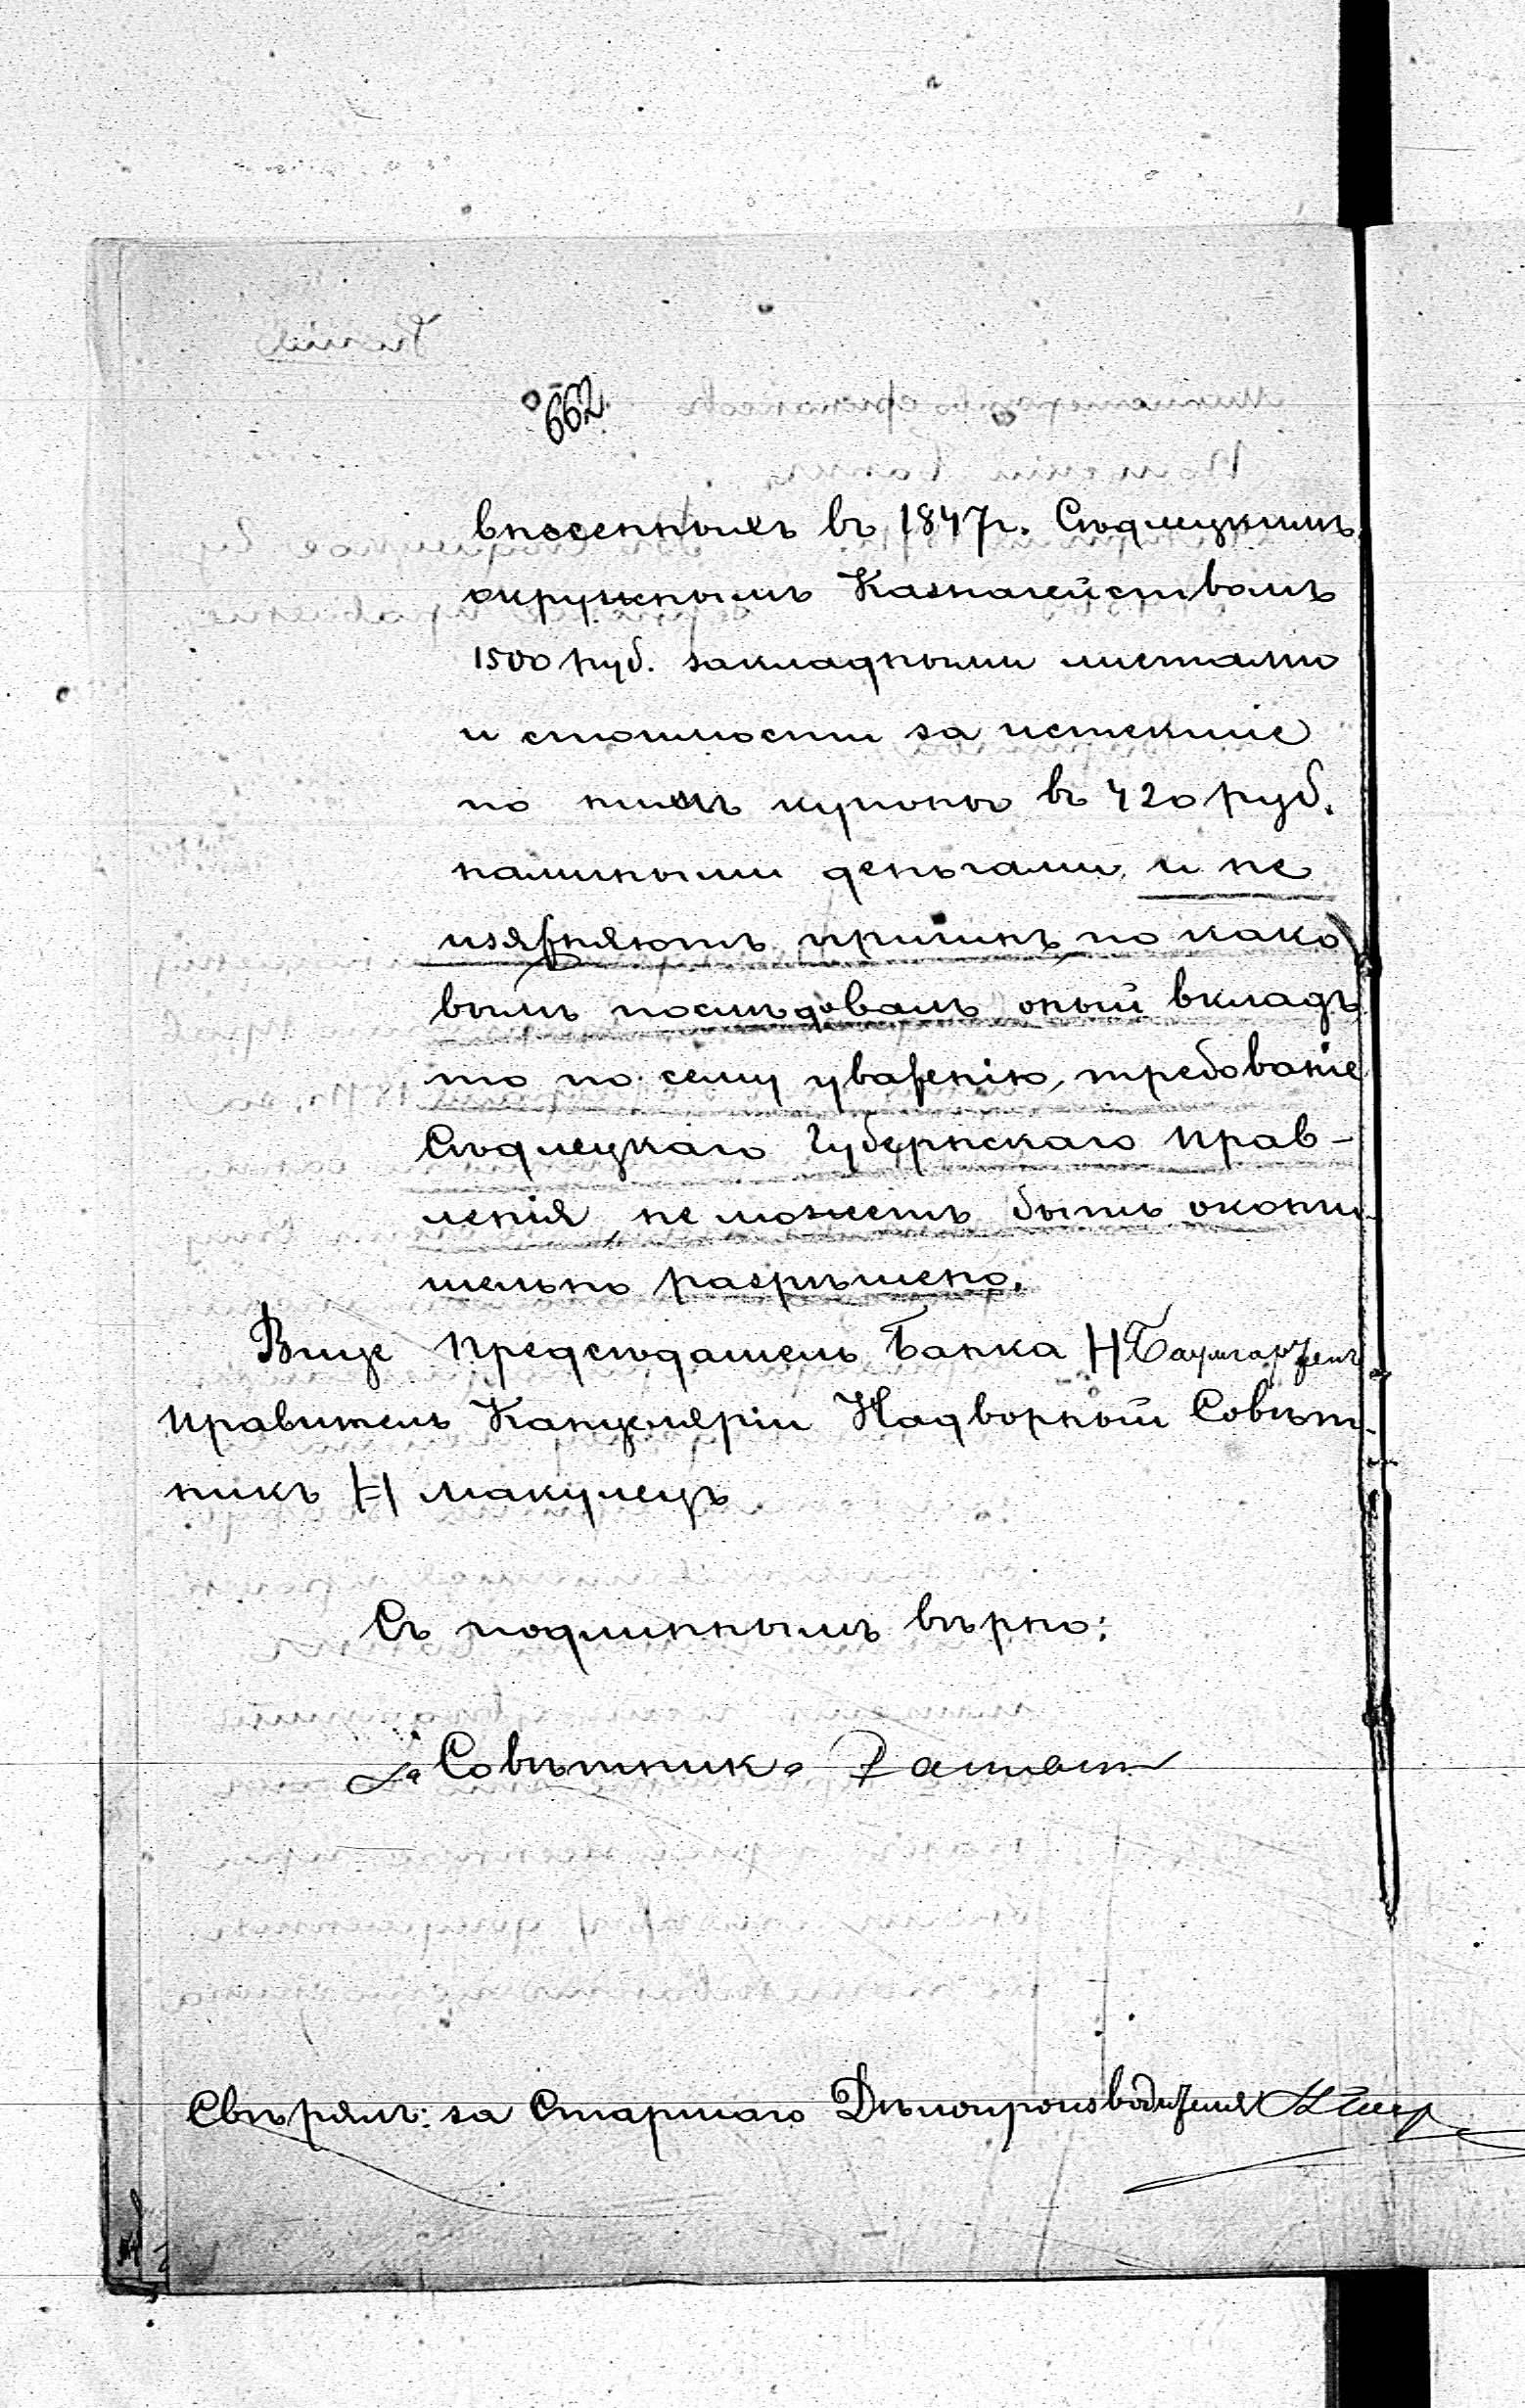 662
внесенныхъ въ 1847г. Сѣдлецкимъ
окружнымъ Казначействомъ
1500 руб. закладными листами
и стоимости за истекшіе
по нимъ купоны въ 420 руб.
наличными деньгами, и не
изъясняютъ причинъ по како
вымъ послѣдовалъ оный вкладъ
то по сему уваженію, требованіе
Сѣдлецкаго Губернскаго Прав-
ленія, не можетъ быть оконча
тельно разрѣшено.
Вице Предсѣдатель Банка Н Баумгартенъ
Правитель Канцеляріи Надворный Совѣт-
никъ Н Макулецъ
Съ подлиннымъ вѣрно:
За Совѣтника
Свѣрялъ: за Старшаго Дѣлопроизводителя